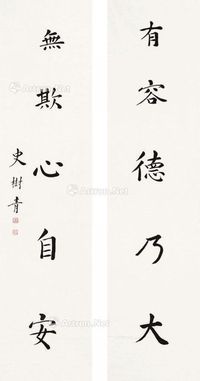 有容德乃大
無欺心自安
史樹青